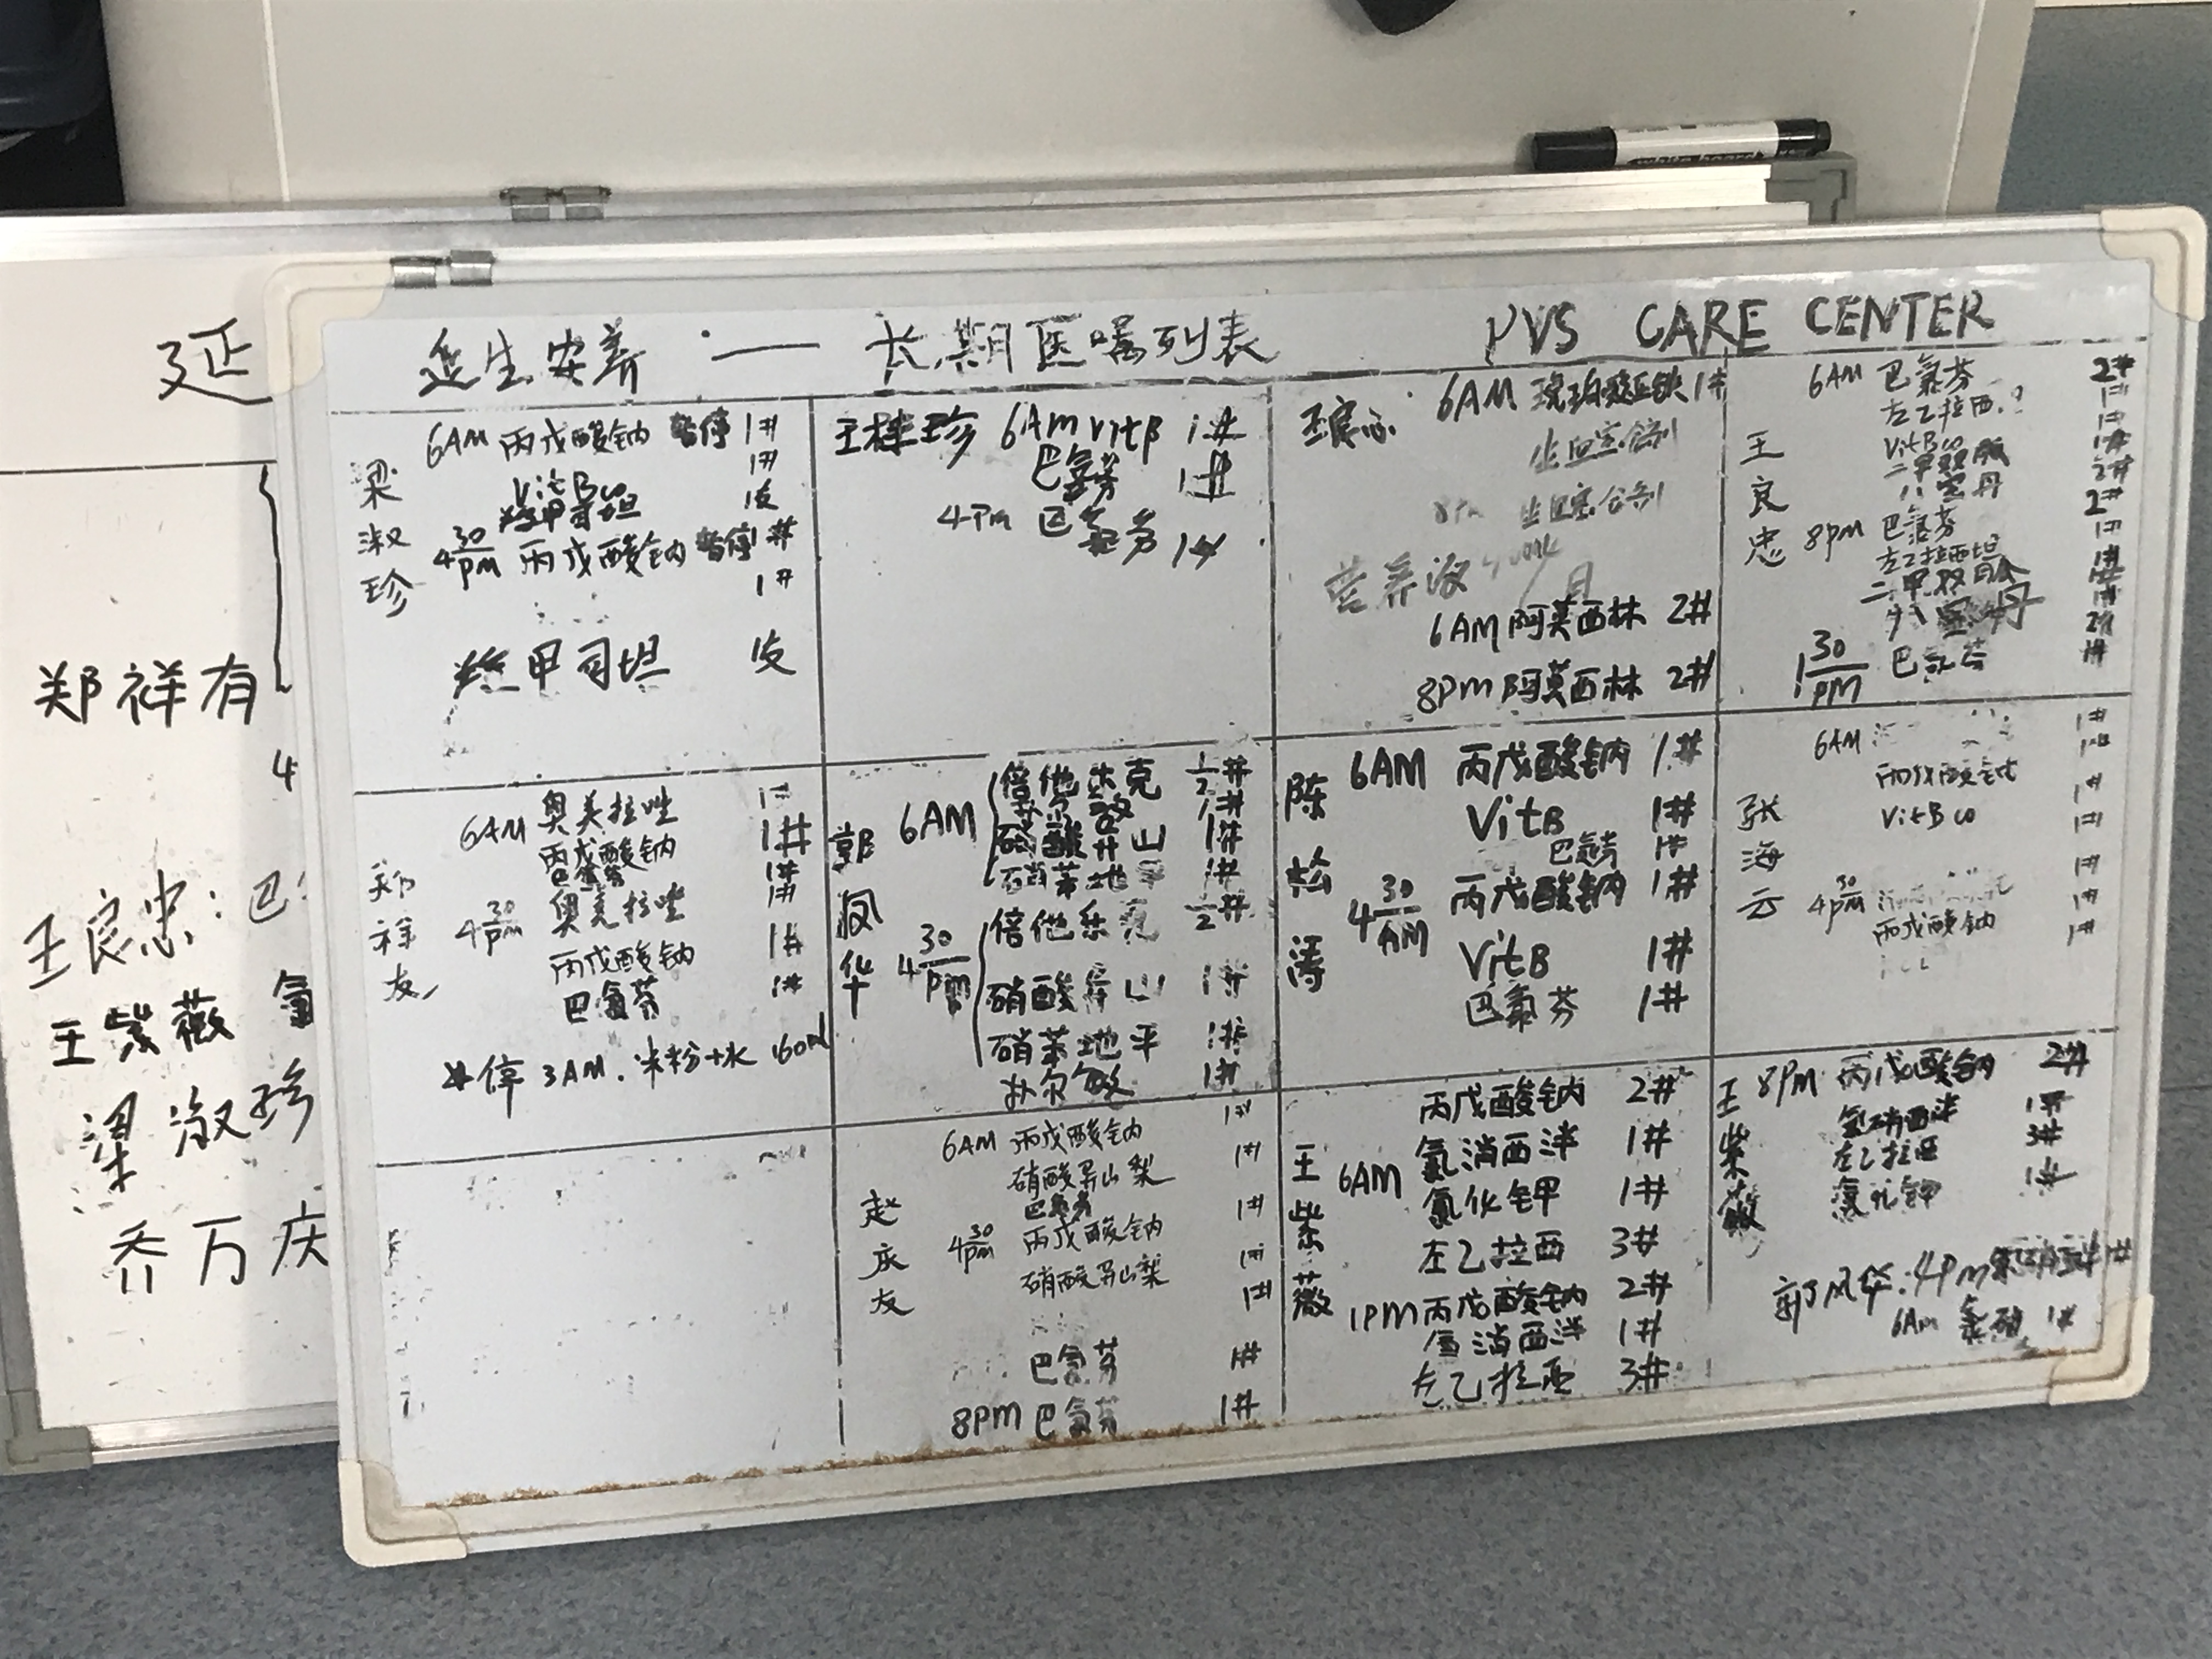 延生安养 — 长期医嘱列表 PVS CARE CENTER
梁淑珍
6AM 丙戊酸钠 暂停 1#
VitBco 1#
羟甲司坦 1支
4 30/pm 丙戊酸钠 暂停 1#
1#
羟甲司坦 支
王桂珍 6AM VitB 1#
巴氯芬 1#
4Pm 巴氯芬 1#
6AM 琥珀亚铁 1#
生血宝合剂
8pm 生血宝合剂
营养液 /月
6AM 阿莫西林 2#
8pm 阿莫西林 2#
王良忠
6AM 巴氯芬 2#
左乙拉西 1#
VitBco 1#
二甲双胍 1#
八宝丹 2#
8pm 巴氯芬 2#
左乙拉西坦 1#
二甲双胍 1#
1 30/PM 巴氯芬 1#
郑祥友
6AM 奥美拉唑 1#
丙戊酸钠 1#
巴氯芬 1#
4 30/pm 奥美拉唑 1#
丙戊酸钠 1#
巴氯芬 1#
停 3AM. 米粉+水 160ml
郭凤华
6AM 倍他乐克 1/2#
朴尔敏 1#
硝酸异山 1#
硝苯地平 1#
4 30/pm 倍他乐克 1/2#
硝酸异山 1#
硝苯地平 1#
朴尔敏 1#
陈松涛
6AM 丙戊酸钠 1#
VitB 1#
巴氯芬 1#
4 30/AM 丙戊酸钠 1#
VitB 1#
巴氯芬 1#
张海云
6AM 1#
丙戊酸钠 1#
VitBco 1#
1#
4 30/pm 1#
丙戊酸钠 1#
1#
赵庆友
6AM 丙戊酸钠 1#
硝酸异山梨 1#
巴氯芬 1#
4 30/pm 丙戊酸钠 1#
硝酸异山梨 1#
巴氯芬 1#
8PM 巴氯芬 1#
王紫薇
丙戊酸钠 2#
6AM 氯消西泮 1#
氯化钾 1#
左乙拉西 3#
1PM 丙戊酸钠 2#
氯消西泮 1#
左乙拉西 3#
王紫薇
8PM 丙戊酸钠 2#
氯消西泮 1#
左乙拉西 3#
氯化钾 1#
郭凤华: 4pm 1#
6Am 1#
延
郑祥有
4
王良忠: 巴
王紫薇 氯
梁淑珍
乔万庆